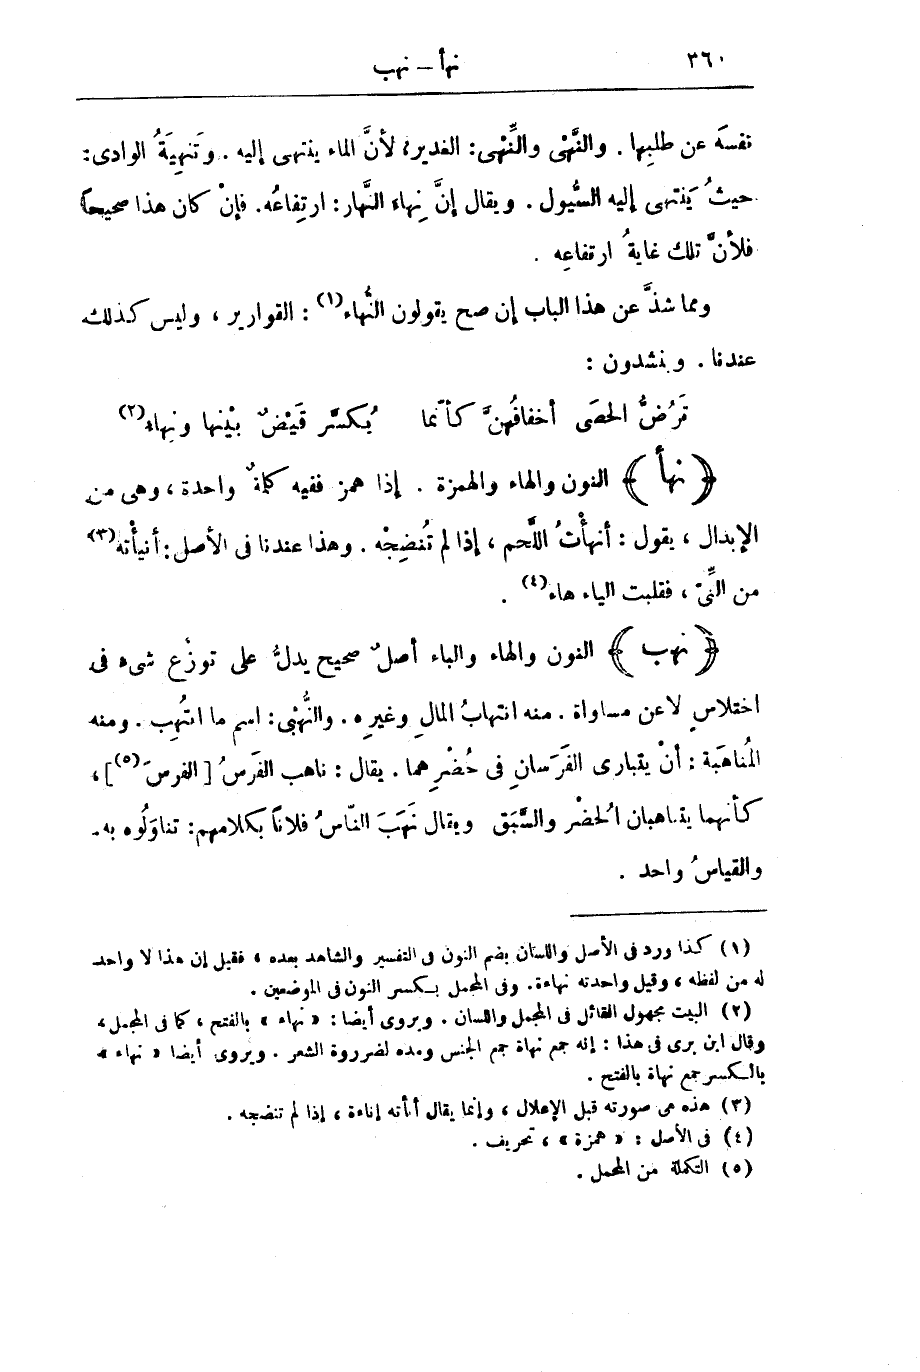 ٣٦٠
نهأ — نهب
نفسَه عن طلبِها . والنَّهْى والنِّهْى: الغدير؛ لأنَّ الماء ينتهى إليه . وتَنهِيَةُ الوادى:
حيثُ يَنتهى إليه السُّيول . ويقال إنَّ نِهاء النَّهار: ارتِفاعُه. فإنْ كان هذا صحيحاً
فلأنَّ تلك غايةُ ارتفاعِه .
ومما شذَّ عن هذا الباب إن صح يقولون النُّهاء(١) : القوارير ، وليس كذلك
عندنا . وينشدون :
تَرُضُّ الحصَى أخفافُهنَّ كأنّما يُكسَّر قَيْضٌ بيْنها ونِهاء(٢)
﴿ نهأ ﴾ النون والهاء والهمزة . إذا همز ففيه كلمةٌ واحدة ، وهى من
الإبدال ، يقول : أنهأْتُ اللَّحم ، إذا لم تُنضِجْه . وهذا عندنا فى الأصل : أنيأْته(٣)
من النِّىّ ، فقلبت الياء هاء(٤) .
﴿ نهب ﴾ النون والهاء والباء أصلٌ صحيح يدلُّ على توزُّع شىء فى
اختلاسٍ لا عن مساواة . منه انتهابُ المالِ وغيرِه . والنُّهْبَى: اسم ما انتُهِب . ومنه
المُناهَبة : أنْ يتبارى الفَرَسانِ فى حُضْرِهما . يقال : ناهب الفَرَسُ [ الفرسَ(٥) ] ،
كأنهما يتناهبان الحُضْر والسَّبَق ويقال نَهَبَ النّاسُ فلاناً بكلامهم: تناوَلُوه به.
والقياسُ واحد .
(١) كذا ورد فى الأصل واللسان بضم النون فى التفسير والشاهد بعده ، فقيل إن هذا لا واحد
له من لفظه ، وقيل واحدته نهاءة. وفى المجمل بكسر النون فى الموضعين .
(٢) البيت مجهول القائل فى المجمل واللسان . ويروى أيضا : « نهاء » بالفتح ، كما فى المجمل ،
وقال ابن برى فى هذا : إنه جمع نهاة جمع الجنس ومده لضرورة الشعر . ويروى أيضا « نهاء »
بالكسر جمع نهاة بالفتح .
(٣) هذه هى صورته قبل الإعلال ، وإنما يقال أنأته إناءة ، إذا لم تنضجه .
(٤) فى الأصل : « همزة » ، تحريف .
(٥) التكملة من المجمل .